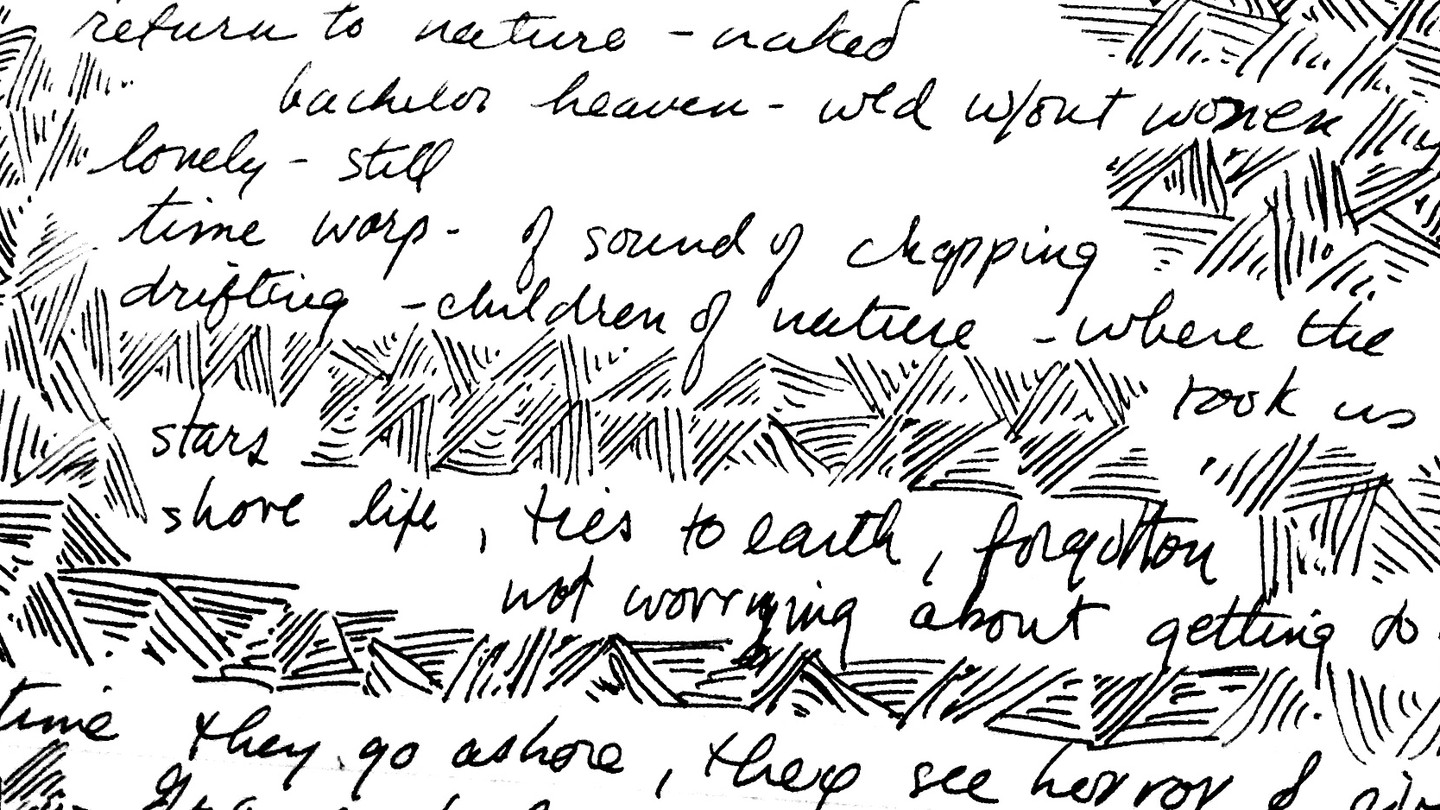 return to nature - naked
bachelor heaven - wld w/out women
lonely - still
time warp - of sound of chopping
drifting - children of nature - where the
stars took us
shore life, ties to earth, forgotten
not worrying about getting to
time they go ashore, they see horror of